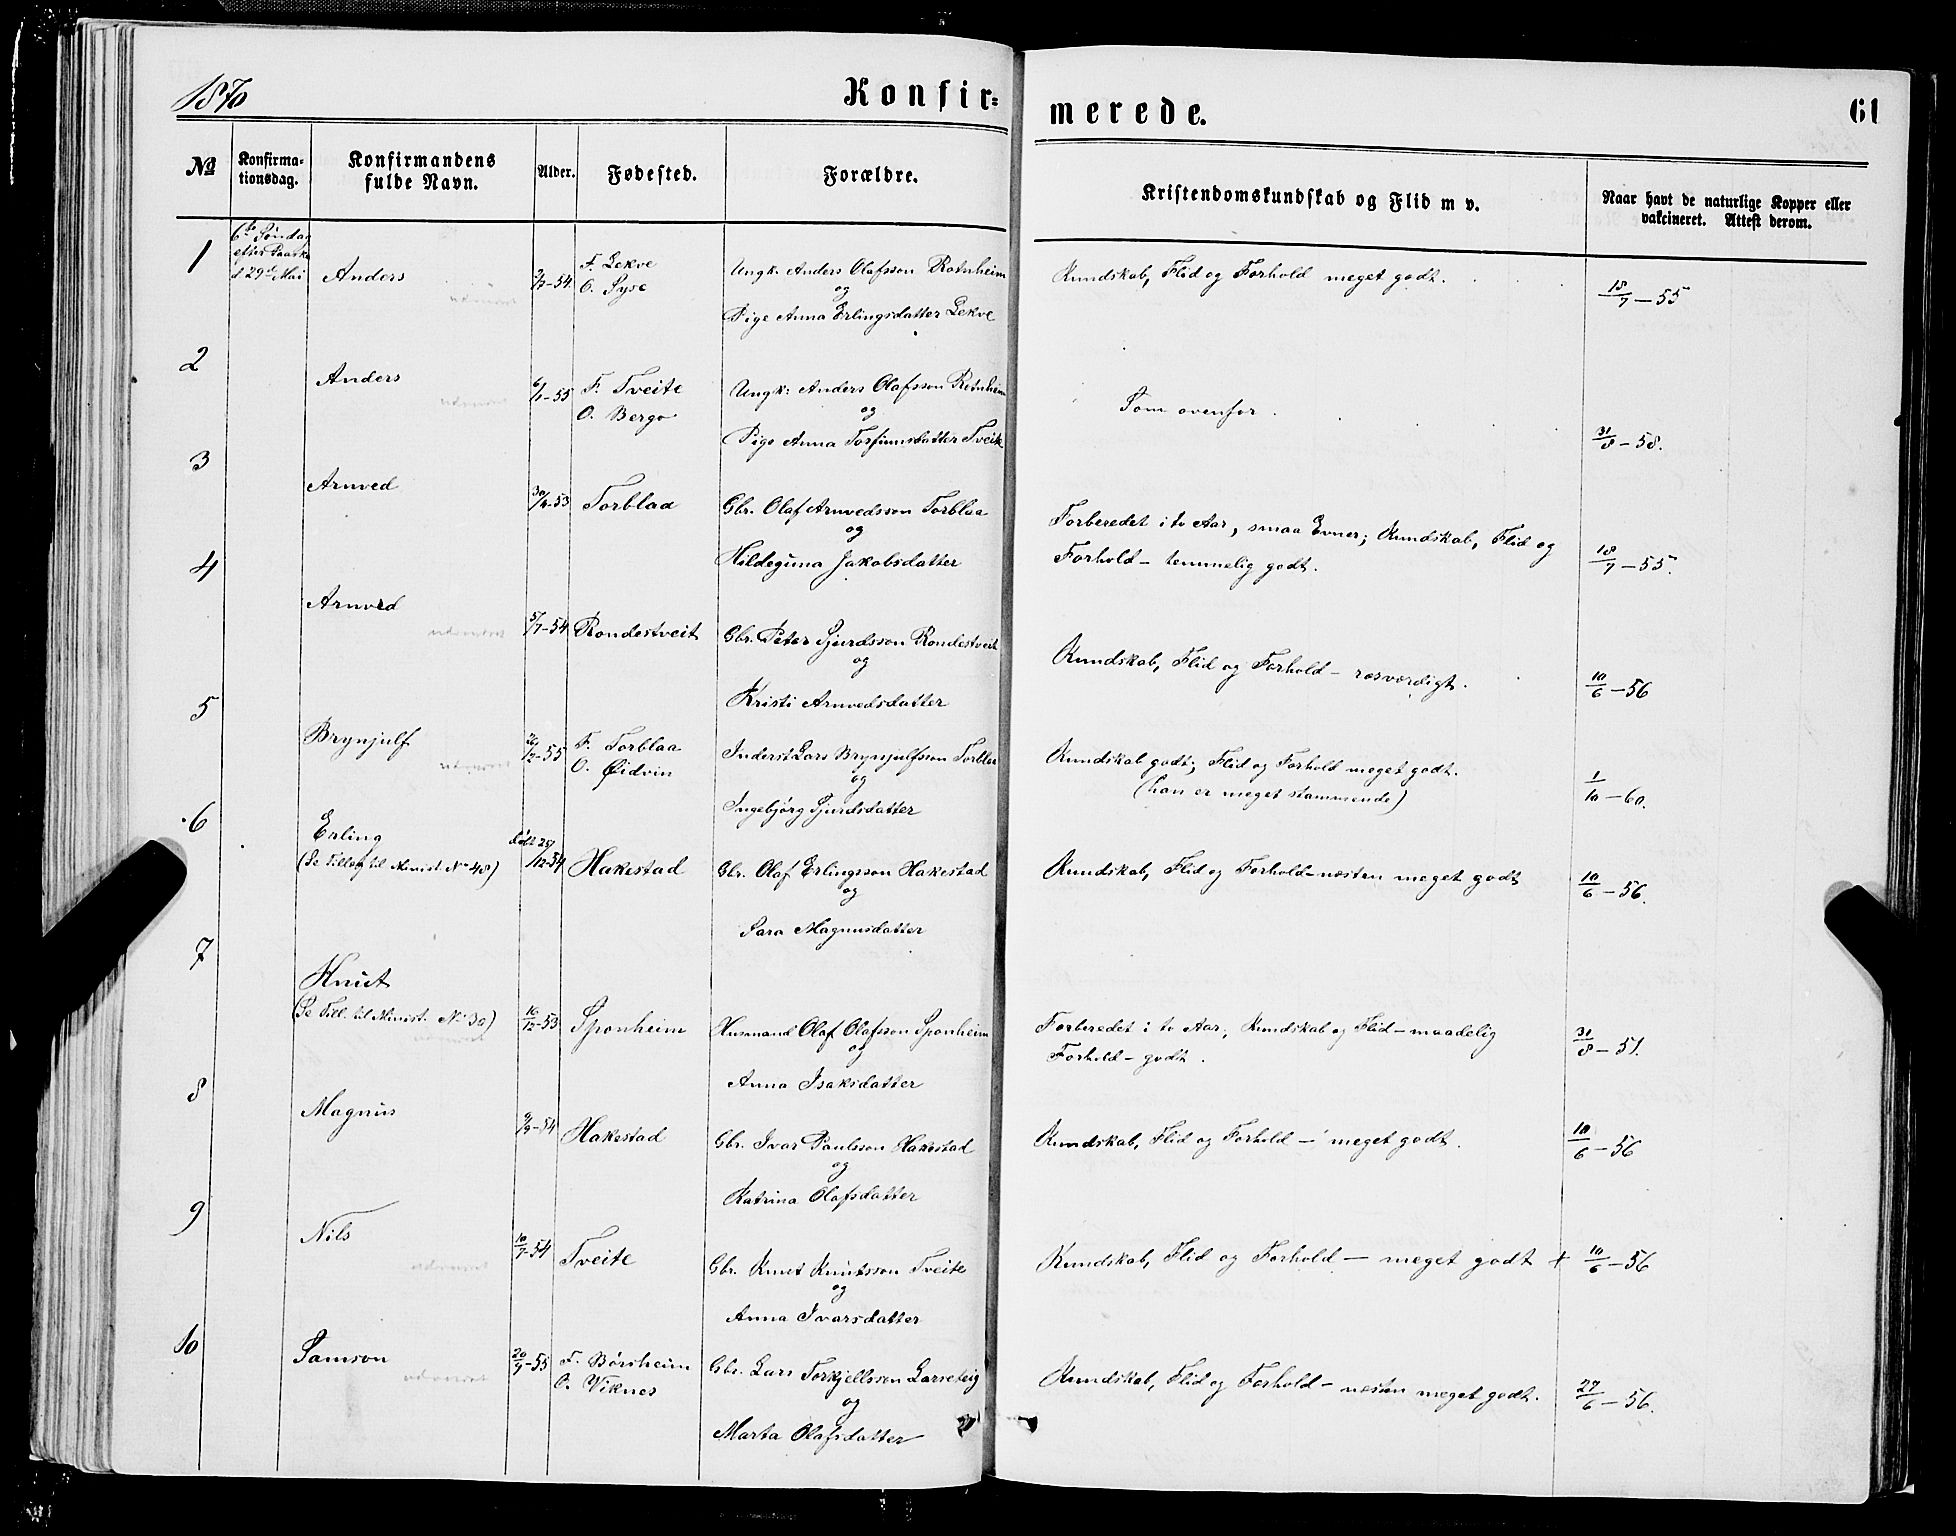 1870
Konfir=
merede.
61
No
Konfirma-
tionsdag.
Konfirmandens
fulde Navn.
Alder.
Fødested.
Forældre.
Kristendomskundskab og Flid m v.
Naar havt de naturlige Kopper eller
vakcineret. Attest derom.
1
6te Søndag
efter Paaske
d 29de Mai
Anders
-54
F. Lekve
O. Syse
Ungk. Anders Olafsson Rotnheim
og
Pige Anna Erlingsdatter Lekve
Kundskab, Flid og Forhold meget godt.
18/7-55
2
Anders
-55
F. Tveite
O. Bergo
Ungk: Anders Olafsson Rotnheim
og
Pige Anna Torfinnsdatter Tveite
Som ovenfor.
31/8-58.
3
Arnved
-53
Torblaa
Gbr. Olaf Arnvedsson Torblaa
og
Hildeguna Jakobsdatter
Forberedet i to Aar, smaa Evner; Kundskab, Flid og
Forhold - temmelig godt.
18/7-55.
4
Arnved
5/7-54
Rondestveit
Gbr. Peter Sjurdsson Rondestveit
og
Kristi Arnvedsdatter
Kundskab, Flid og Forhold - rosværdigt.
10/6-56
5
Brynjulf
-55
F. Torblaa
O. Øidvin
Inderst Lars Brynjulfsson Torblaa
og
Ingebjørg Sjurdsdatter
Kundskab godt; Flid og Forhold meget godt.
(han er meget stammende)
1/10-60.
6
Erling
(Se Tillæg til Minist. No 48)
født 29/12-54
Hakestad
Gbr. Olaf Erlingsson Hakestad
og
Sara Magnusdatter
Kundskab, Flid og Forhold - næsten meget godt
10/6-56.
7
Knut
(Se Till. til Minist. No 30)
16/12-53
Sponheim
Husmand Olaf Olafsson Sponheim
og
Anna Isaksdatter
Forberedet i to Aar, Kundskab og Flid - maadelig
Forhold - godt.
31/8-51.
8
Magnus
9/9-54
Hakestad
Gbr. Ivar Paulsson Hakestad
og
Katrina Olafsdatter
Kundskab, Flid og Forhold - meget godt.
10/6-56
9
Nils
10/7-54
Tveite
Gbr. Knut Knutsson Tveite
og
Anna Ivarsdatter
Kundskab, Flid og Forhold - meget godt +
10/6-56
10
Samson
20/9-55
F. Børsheim
O. Viknes
Gbr. Lars Torkjellsson Larseteig
og
Marta Olafsdatter
Kundskab, Flid og Forhold - næsten meget godt.
27/6-56.